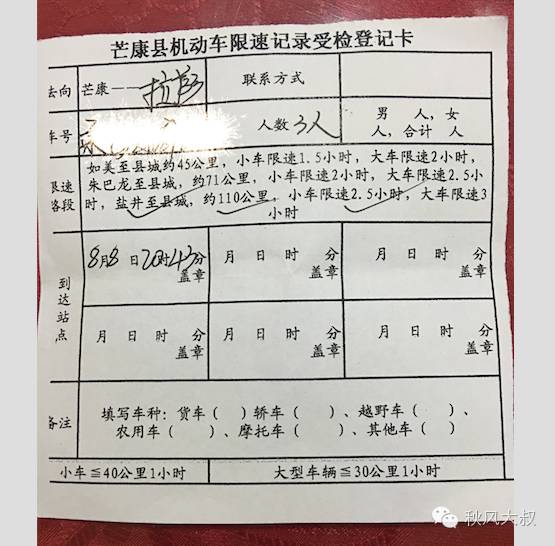 芒康县机动车限速记录受检登记卡
去向 芒康——拉萨 联系方式
车号 人数 3人 男 人，女
人，合计 人
限速 如美至县城约45公里，小车限速1.5小时，大车限速2小时，
路段 朱巴龙至县城，约71公里，小车限速2小时，大车限速2.5小
时，盐井至县城，约110公里，小车限速2.5小时，大车限速3
小时
到达站点
8月8日20时43分 月 日 时 分 月 日 时 分
盖章 盖章 盖章
月 日 时 分 月 日 时 分 月 日 时 分
盖章 盖章 盖章
备注 填写车种：货车（ ）轿车（ ）、越野车（ ）、
农用车（ ）、摩托车（ ）、其他车（ ）
小车≦40公里1小时 大型车辆≦30公里1小时
秋风大叔